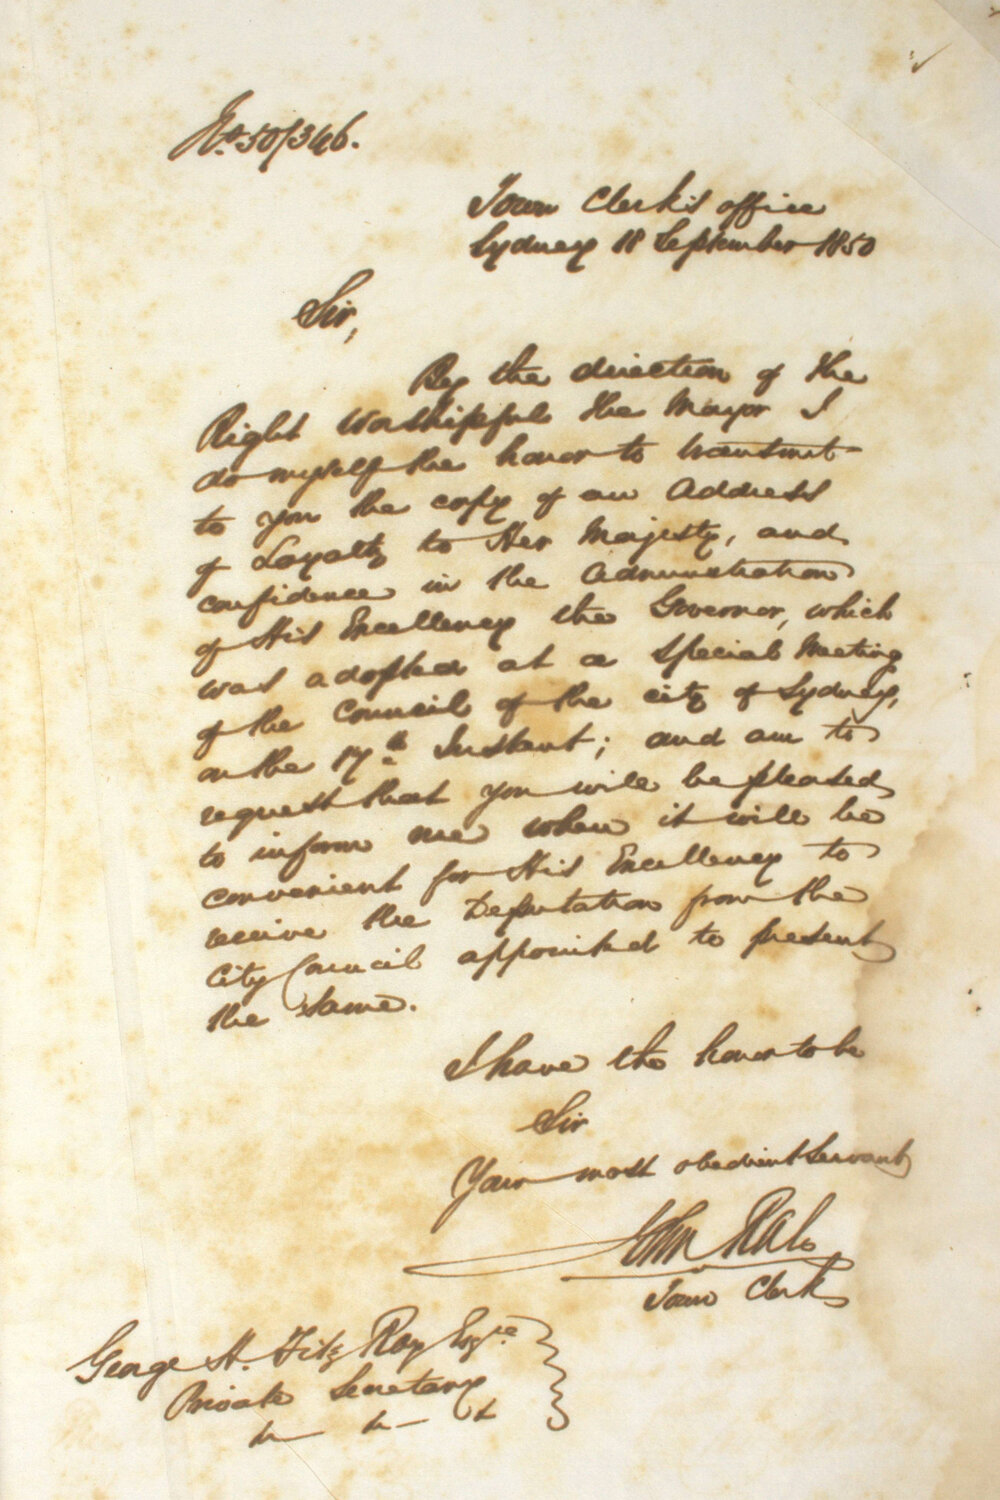 No. 50/346.
Town Clerk's office
Sydney 18 September 1850
Sir,
By the direction of the
Right Worshipful the Mayor I
do myself the honor to transmit
to you the copy of an Address
of Loyalty to Her Majesty, and
confidence in the Administration
of His Excellency the Governor, which
was adopted at a Special Meeting
of the Council of the city of Sydney,
on the 17th Instant; and am to
request that you will be pleased
to inform me when it will be
convenient for His Excellency to
receive the Deputation from the
City Council appointed to present
the same.
I have the honor to be
Sir
Your most obedient Servant
John
Town Clerk
George H. Fitz Roy Esqre
Private Secretary